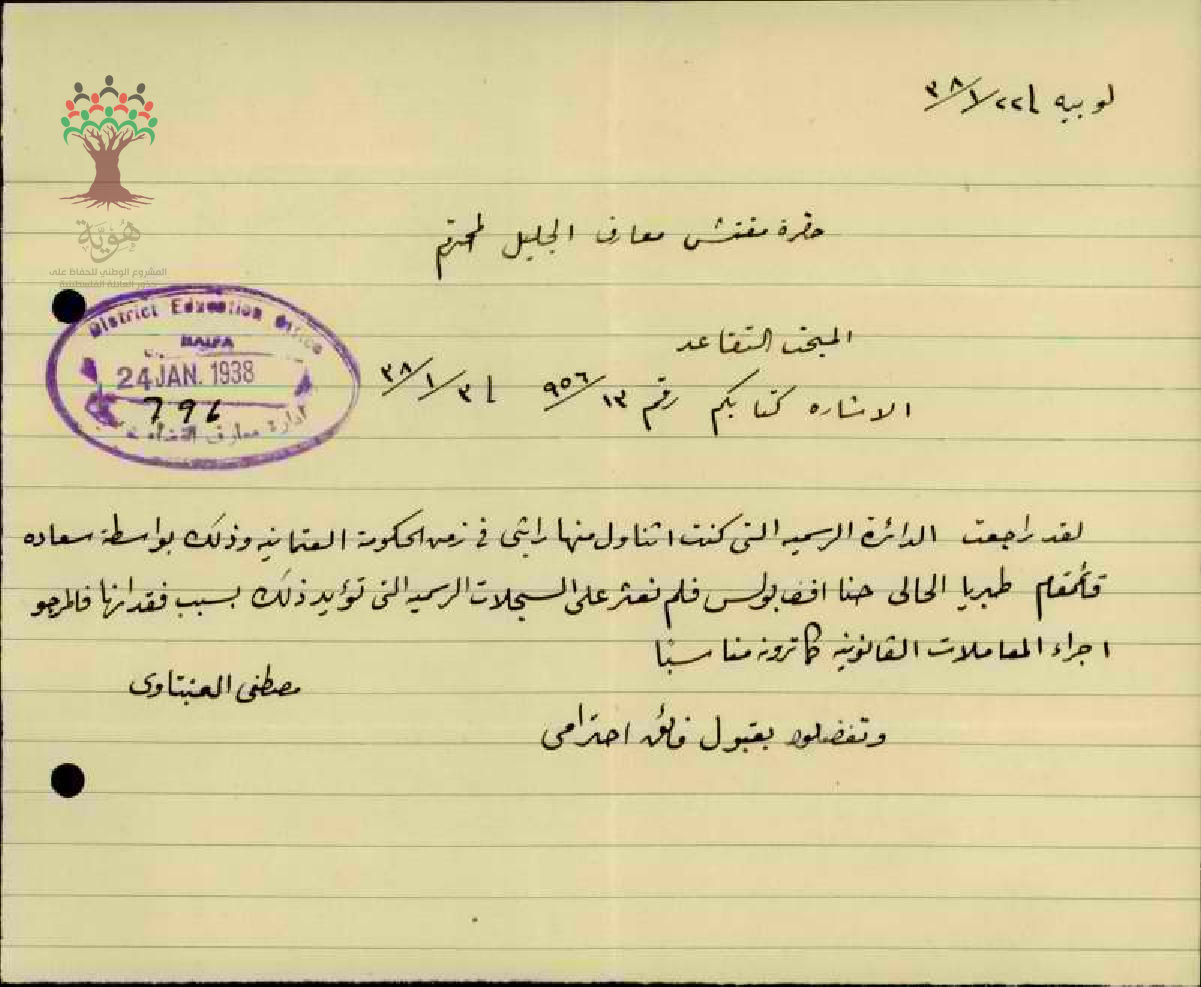 لوبيه في ٢٢/١/٣٨
حضرة مفتش معارف الجليل المحترم
هُويّة
المشروع الوطني للحفاظ على
جذور العائلة الفلسطينية
District Education Office
HAIFA
24 JAN. 1938
796
ادارة معارف القضاء
المبحث التقاعد
الاشاره كتابكم رقم ١٣/٩٥٦ في ٣/١/٣٨
لقد راجعت الدائرة الرسميه التي كنت اتناول منها راتبي في زمن الحكومة العثمانيه وذلك بواسطة سعاده
قائمقام طبريا الحالي حنا افندي بولس فلم نعثر على السجلات الرسميه التي تؤيد ذلك بسبب فقدانها فالمرجو
اجراء المعاملات القانونيه كما ترونه مناسبًا
مصطفى العنبتاوي
وتفضلوا بقبول فائق احترامي